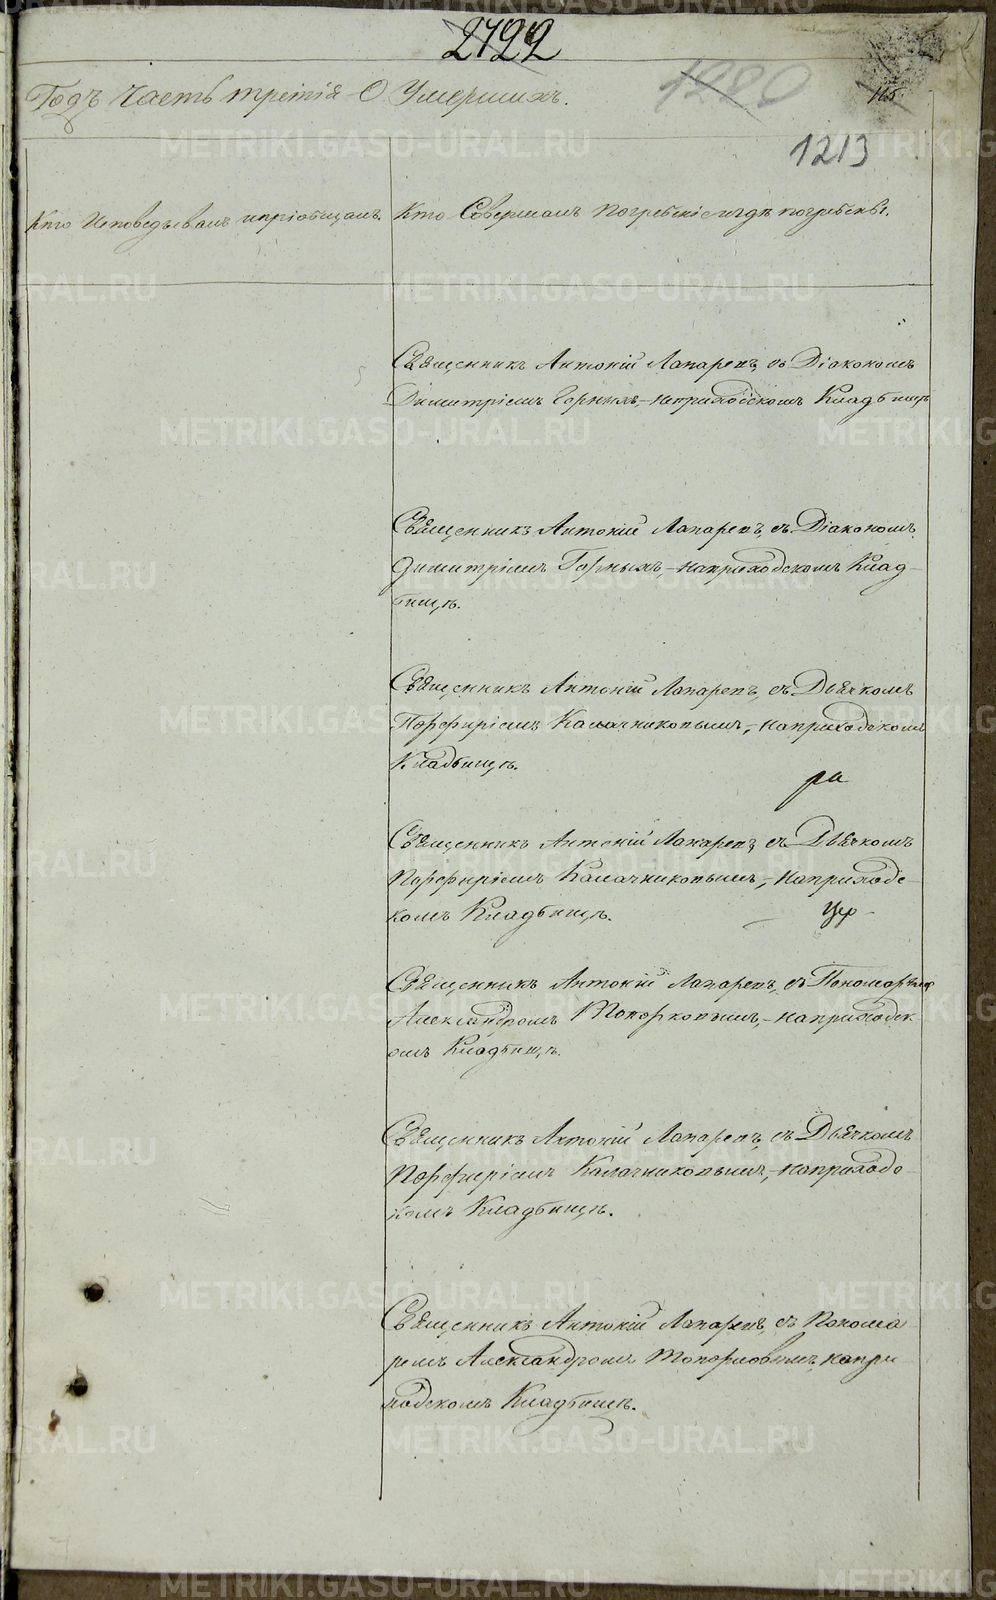 2722
Годъ Часть третія О Умершихъ.
1220
165
1213
Кто Исповедывалъ и пріобщалъ.
Кто Совершалъ Погребеніе и гдѣ погребены.
Священникъ Антоній Лапаревъ, съ Діакономъ
Димитріемъ Горныхъ, - наприходскомъ Кладбищѣ
Священникъ Антоній Лапаревъ, съ Діакономъ
Димитріемъ Горныхъ, - наприходскомъ Клад-
бищѣ.
Священникъ Антоній Лапаревъ, съ Дьячкомъ
Порфиріемъ Калачниковымъ, - наприходскомъ
Кладбищѣ.
ра
Священникъ Антоній Лапаревъ, съ Дьячкомъ
Порфиріемъ Калачниковымъ, - наприходс-
комъ Кладбищѣ.
Священникъ Антоній Лапаревъ, съ Пономаремъ
Александромъ Топорковымъ, - наприходск-
омъ Кладбищѣ.
Священникъ Антоній Лапаревъ, съ Дьячкомъ
Порфиріемъ Калачниковымъ, - наприходс-
комъ Кладбищѣ.
Священникъ Антоній Лапаревъ, съ Понома-
ремъ Александромъ напри-
ходскомъ Кладбищѣ.
METRIKI.GASO-URAL.RU